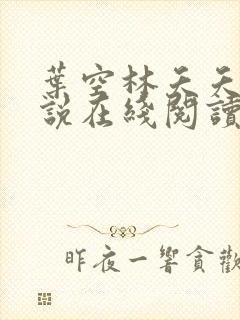 葉空林天天
說在綫閱讀
昨夜一響貪歡